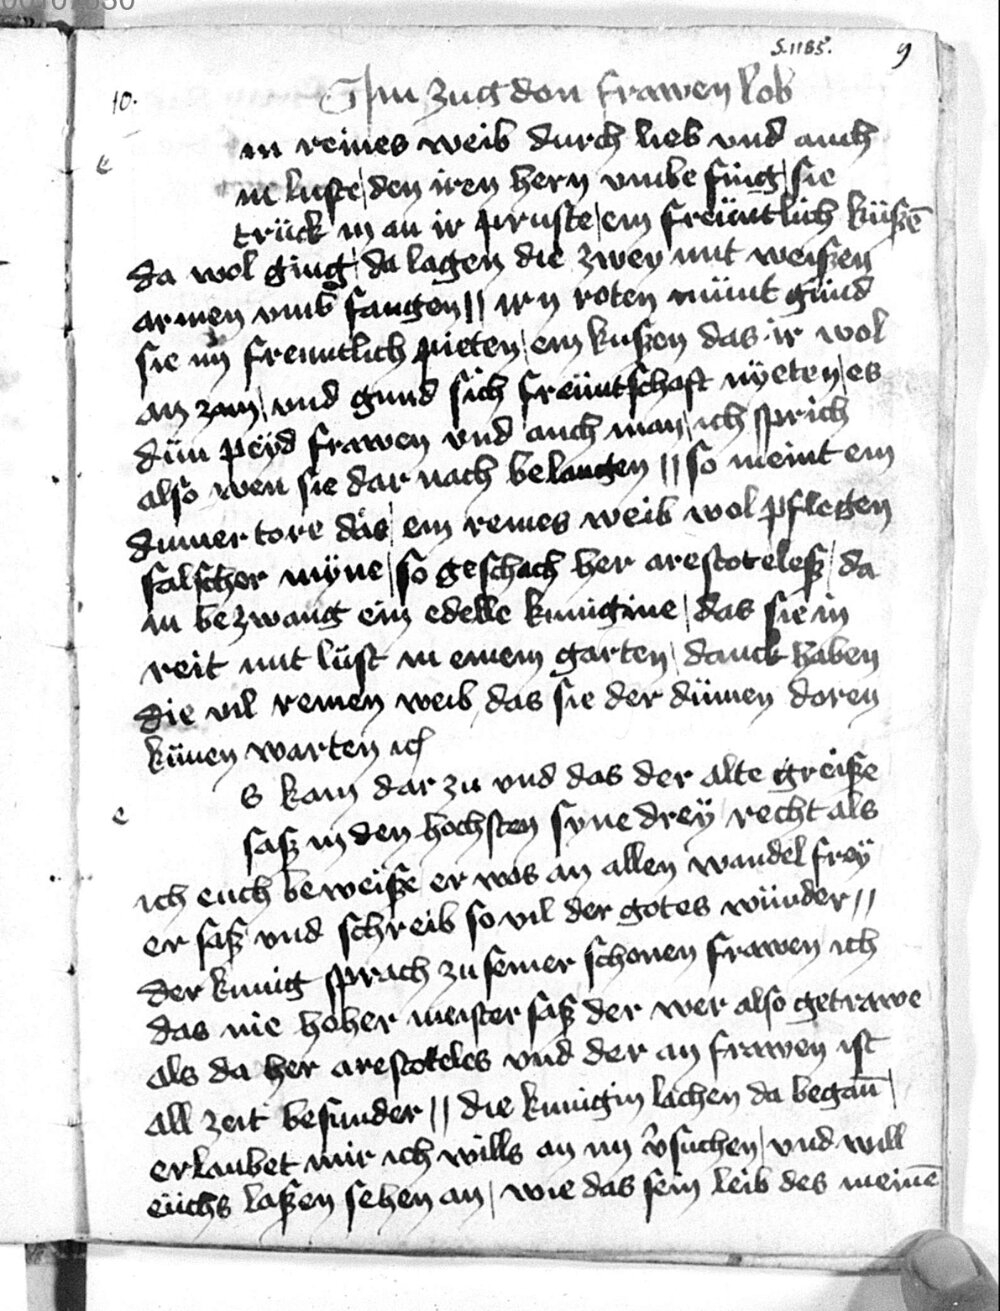 S. 1185. 9
10. Im zug don frawen lob
e in reines weib durch lieb vnd auch
in luste | den iren hern vmbe fing | sie
trück in an ir pruste | ein freüntlich küßē
da wol ging | da lagen die zwey mit weißen
armen vmb fangen || irn roten münt günd
sie im freuntlich pieten | ein kußen das ir wol
an zam | vnd gund sich freüntschaft nÿeten | es
düm peÿd frawen vnd auch man | ich sprich
also wen sie dar nach belangen || so meint ein
dumer tore das | ein reines weib wol pflegen
falscher mÿne | so geschach her arestoteleß | da
in bezwang ein edelle kunigine | das sie in
reit mit lüst in einem garten | danck haben
die vil reinen weib das sie der dümen doren
künen warten ich
e s kam dar zu vnd das der alte greiße
saß in den hochsten syne dreÿ recht als
ich euch beweiße er was an allen wandel freÿ
er saß vnd schreib so vil der gotes wünder //
der kunig sprach zu seiner schonen frawen ich
das nie hoher meister saß der wer also getrawe
als da her arestoteles vnd der an frawen ist
all zeit besunder || die kunigin lachen da began̄ |
erlaubet mir ich wills an im v̄suchen | vnd will
eüchs laßen sehen an | wie das sein leib des meinē